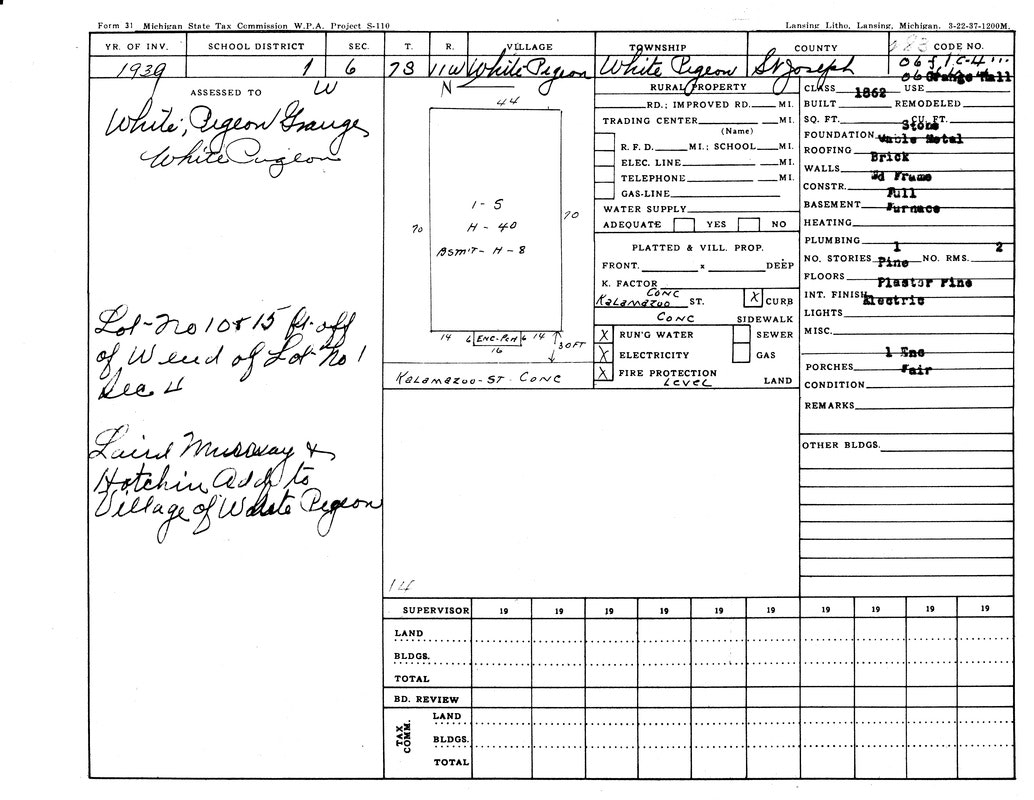 Form 31 Michigan State Tax Commission W.P.A. Project S-110
Lansing Litho, Lansing, Michigan. 3-22-37-1200M.
YR. OF INV. SCHOOL DISTRICT SEC. T. R. VILLAGE TOWNSHIP COUNTY CODE NO.
1939 1 6 7S 11W White Pigeon White Pigeon St Joseph
ASSESSED TO W
White Pigeon Grange
White Pigeon
Lot No 10 & 15 ft. off
of W end of Lot No 1
Sec. 4
Laird Murray &
Hotchin Add to
Village of White Pigeon
N
44
70
1 - S
H - 40
BSmT - H - 8
70
14 6 ENC-PCH 6 14
16
30FT
KaLamazoo-ST. CONC
14
RURAL PROPERTY
RD.; IMPROVED RD. MI.
TRADING CENTER MI.
(Name)
R. F. D. MI.; SCHOOL MI.
ELEC. LINE MI.
TELEPHONE MI.
GAS-LINE
WATER SUPPLY
ADEQUATE YES NO
PLATTED & VILL. PROP.
FRONT. x DEEP
K. FACTOR
CONC
KaLamazoo ST. X CURB
CONC SIDEWALK
X RUN'G WATER SEWER
X ELECTRICITY GAS
X FIRE PROTECTION
LeveL LAND
Grange Hall
CLASS USE
1862
BUILT REMODELED
SQ. FT. CU. FT.
Stone
FOUNDATION
Gable Metal
ROOFING
Brick
WALLS
Wd Frame
CONSTR.
Full
BASEMENT
Furnace
HEATING
PLUMBING
1 2
NO. STORIES NO. RMS.
Pine
FLOORS
Plaster Pine
INT. FINISH
Electric
LIGHTS
MISC.
1 Enc
PORCHES
Fair
CONDITION
REMARKS
OTHER BLDGS.
SUPERVISOR 19 19 19 19 19 19 19 19 19 19
LAND
BLDGS.
TOTAL
BD. REVIEW
TAX COMM.
LAND
BLDGS.
TOTAL